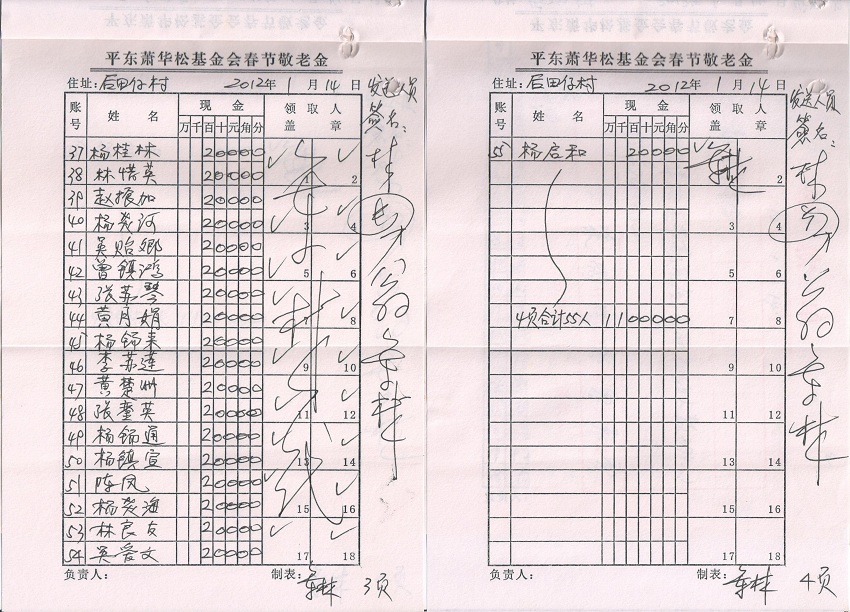 平东萧华松基金会春节敬老金
住址：后田仔村 2012年1月14日
发送人员签名：
账号 姓名 现金 领取人盖章
万千百十元角分
37 杨桂林 20000
38 林惜英 20000 2
39 赵振加 20000
40 杨炎河 20000 3 4
41 吴贻卿 20000
42 曾镇鸿 20000 5 6
43 张苏琴 20000
44 黄月娟 20000 7 8
45 杨锦来 20000
46 李苏莲 20000 9 10
47 黄楚州 20000
48 张銮英 20000 11 12
49 杨锦通 20000
50 杨镇宣 20000 13 14
51 陈凤 20000
52 杨炎海 20000 15 16
53 林良友 20000
54 吴爱文 20000 17 18
负责人： 制表： 3页
平东萧华松基金会春节敬老金
住址：后田仔村 2012年1月14日
发送人员签名：
账号 姓名 现金 领取人盖章
万千百十元角分
55 杨启和 20000
2
3 4
5 6
4页合计55人 1100000 7 8
9 10
11 12
13 14
15 16
17 18
负责人： 制表： 4页